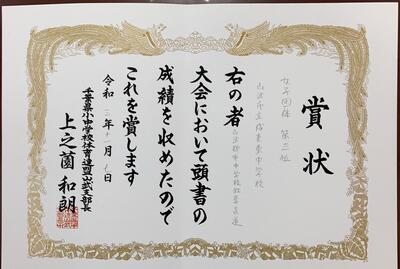 賞状
女子団体 第三位
山武市立成東東中学校
右の者
大会において頭書の
成績を収めたので
これを賞します
令和三年十一月七日
千葉県小中学校体育連盟山武支部長
上之薗和朗